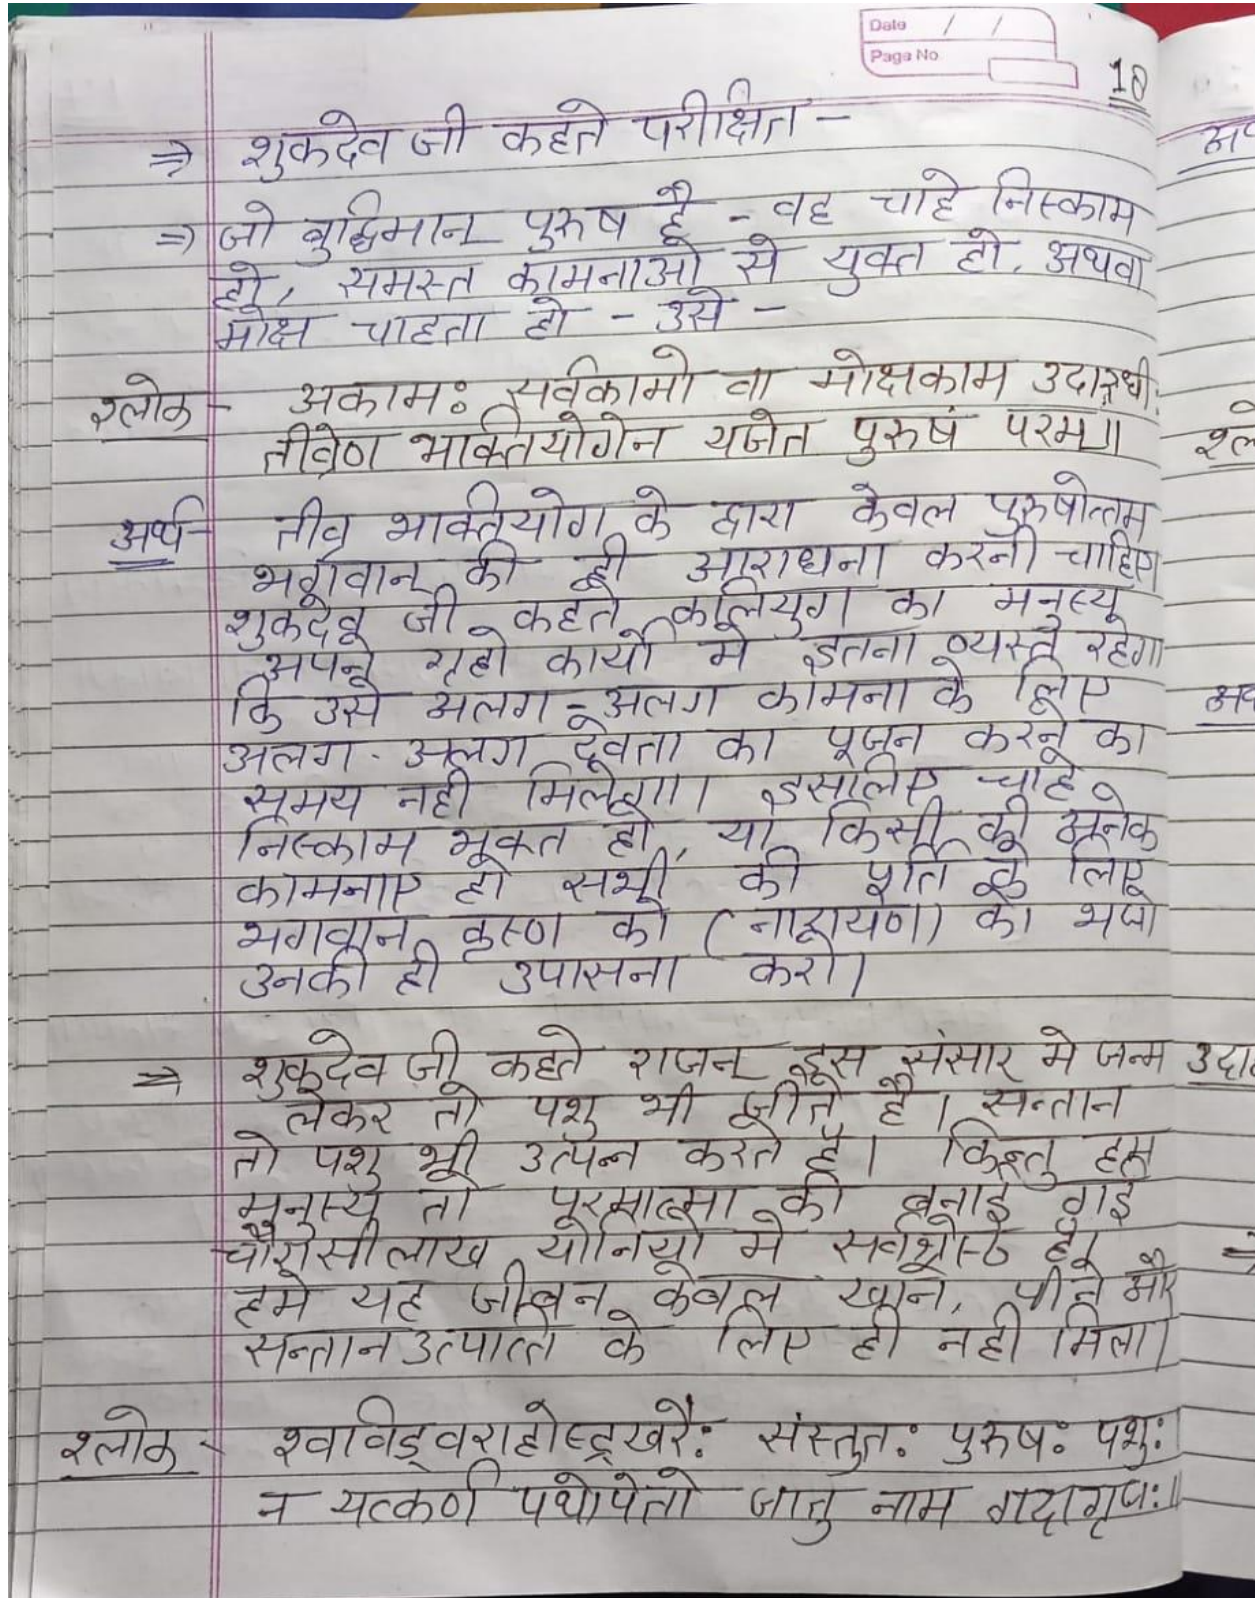 Date / /
Page No.
10
⇒ शुकदेव जी कहते परीक्षित -
⇒ जो बुद्धिमान पुरुष है - वह चाहे निस्काम
हो, समस्त कामनाओ से युक्त हो, अथवा
मोक्ष चाहता हो - उसे -
श्लोक - अकामः सर्वकामो वा मोक्षकाम उदारधीः
तीव्रेण भक्तियोगेन यजेत पुरुषं परम॥
अर्थ - तीव्र भक्तियोग के द्वारा केवल पुरुषोत्तम
भगवान की ही आराधना करनी चाहिए
शुकदेव जी कहते कलियुग का मनुस्य
अपने गृहो कार्यो मे इतना व्यस्त रहेगा
कि उसे अलग-अलग कामना के लिए
अलग-अलग देवता का पूजन करने का
समय नही मिलेगा। इसलिए चाहे
निस्काम भक्त हो, या किसी की अनेक
कामनाए हो सभी की पूर्ति के लिए
भगवान कृस्ण को (नारायण) को भजो
उनकी ही उपासना करो।
⇒ शुकदेव जी कहते राजन इस संसार मे जन्म
लेकर तो पशु भी जीते है। सन्तान
तो पशु भी उत्पन्न करते है। किन्तु हम
मनुस्य तो परमात्मा की बनाई गई
चौरासी लाख योनियो मे सर्वश्रेस्ठ है।
हमे यह जीवन केवल खाने, पीने और
सन्तान उत्पत्ति के लिए ही नही मिला।
श्लोक - श्वविड्वराहोस्ट्रखरैः संस्तुतः पुरुषः पशुः
न यत्कर्ण पथोपेतो जातु नाम गदाग्रजः॥